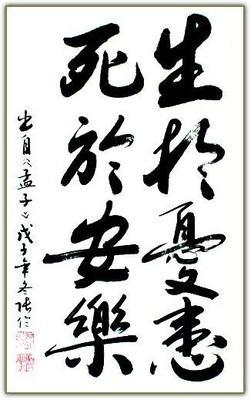 生扵憂患
死於安樂
出自《孟子》戊子年冬张